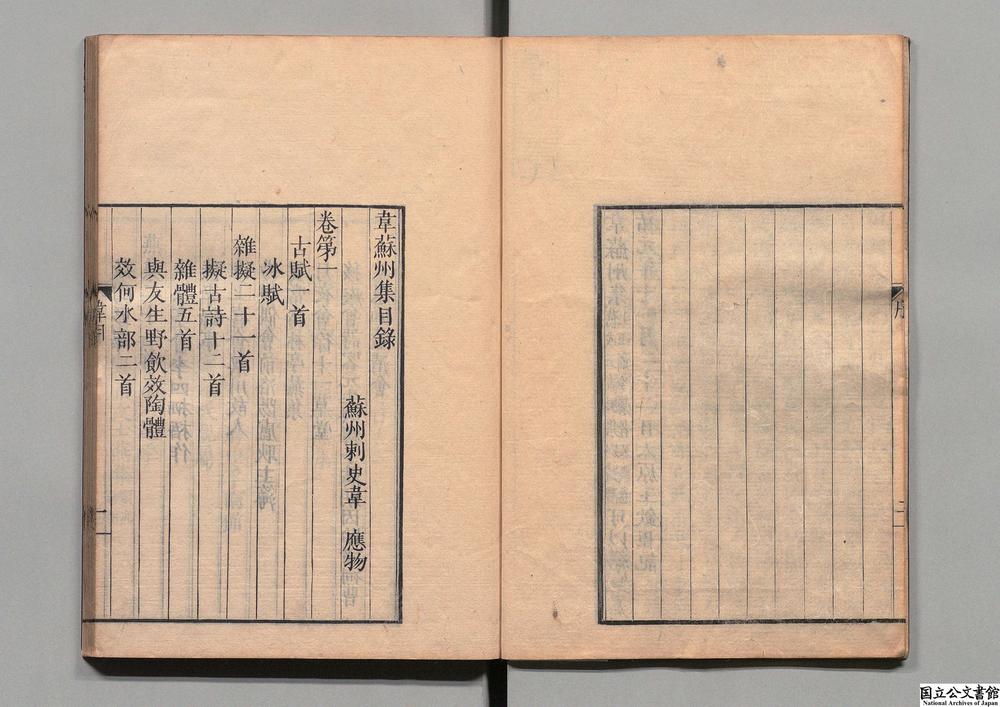 序
二
韋蘇州集目錄
蘇州刺史韋　應物
卷第一
古賦一首
冰賦
雜擬二十一首
擬古詩十二首
雜體五首
與友生野飲效陶體
效何水部二首
韋目
一
国立公文書館
National Archives of Japan